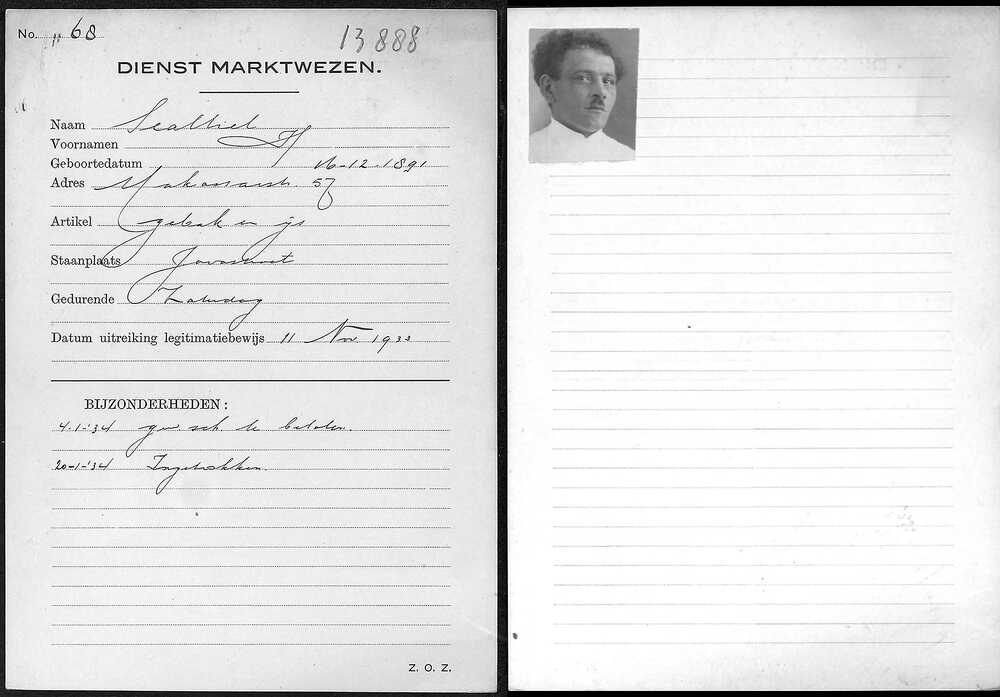 No. „ 68
13888
DIENST MARKTWEZEN.
Naam Sealtiel
Voornamen H
Geboortedatum 16-12-1891
Adres Makassarstr. 57
Artikel gebak en ijs
Staanplaats Javastraat
Gedurende Zaterdag
Datum uitreiking legitimatiebewijs 11 Nov. 1933
BIJZONDERHEDEN:
4-1-'34 gew. sch. te betalen.
20-1-'34 Ingetrokken.
Z. O. Z.